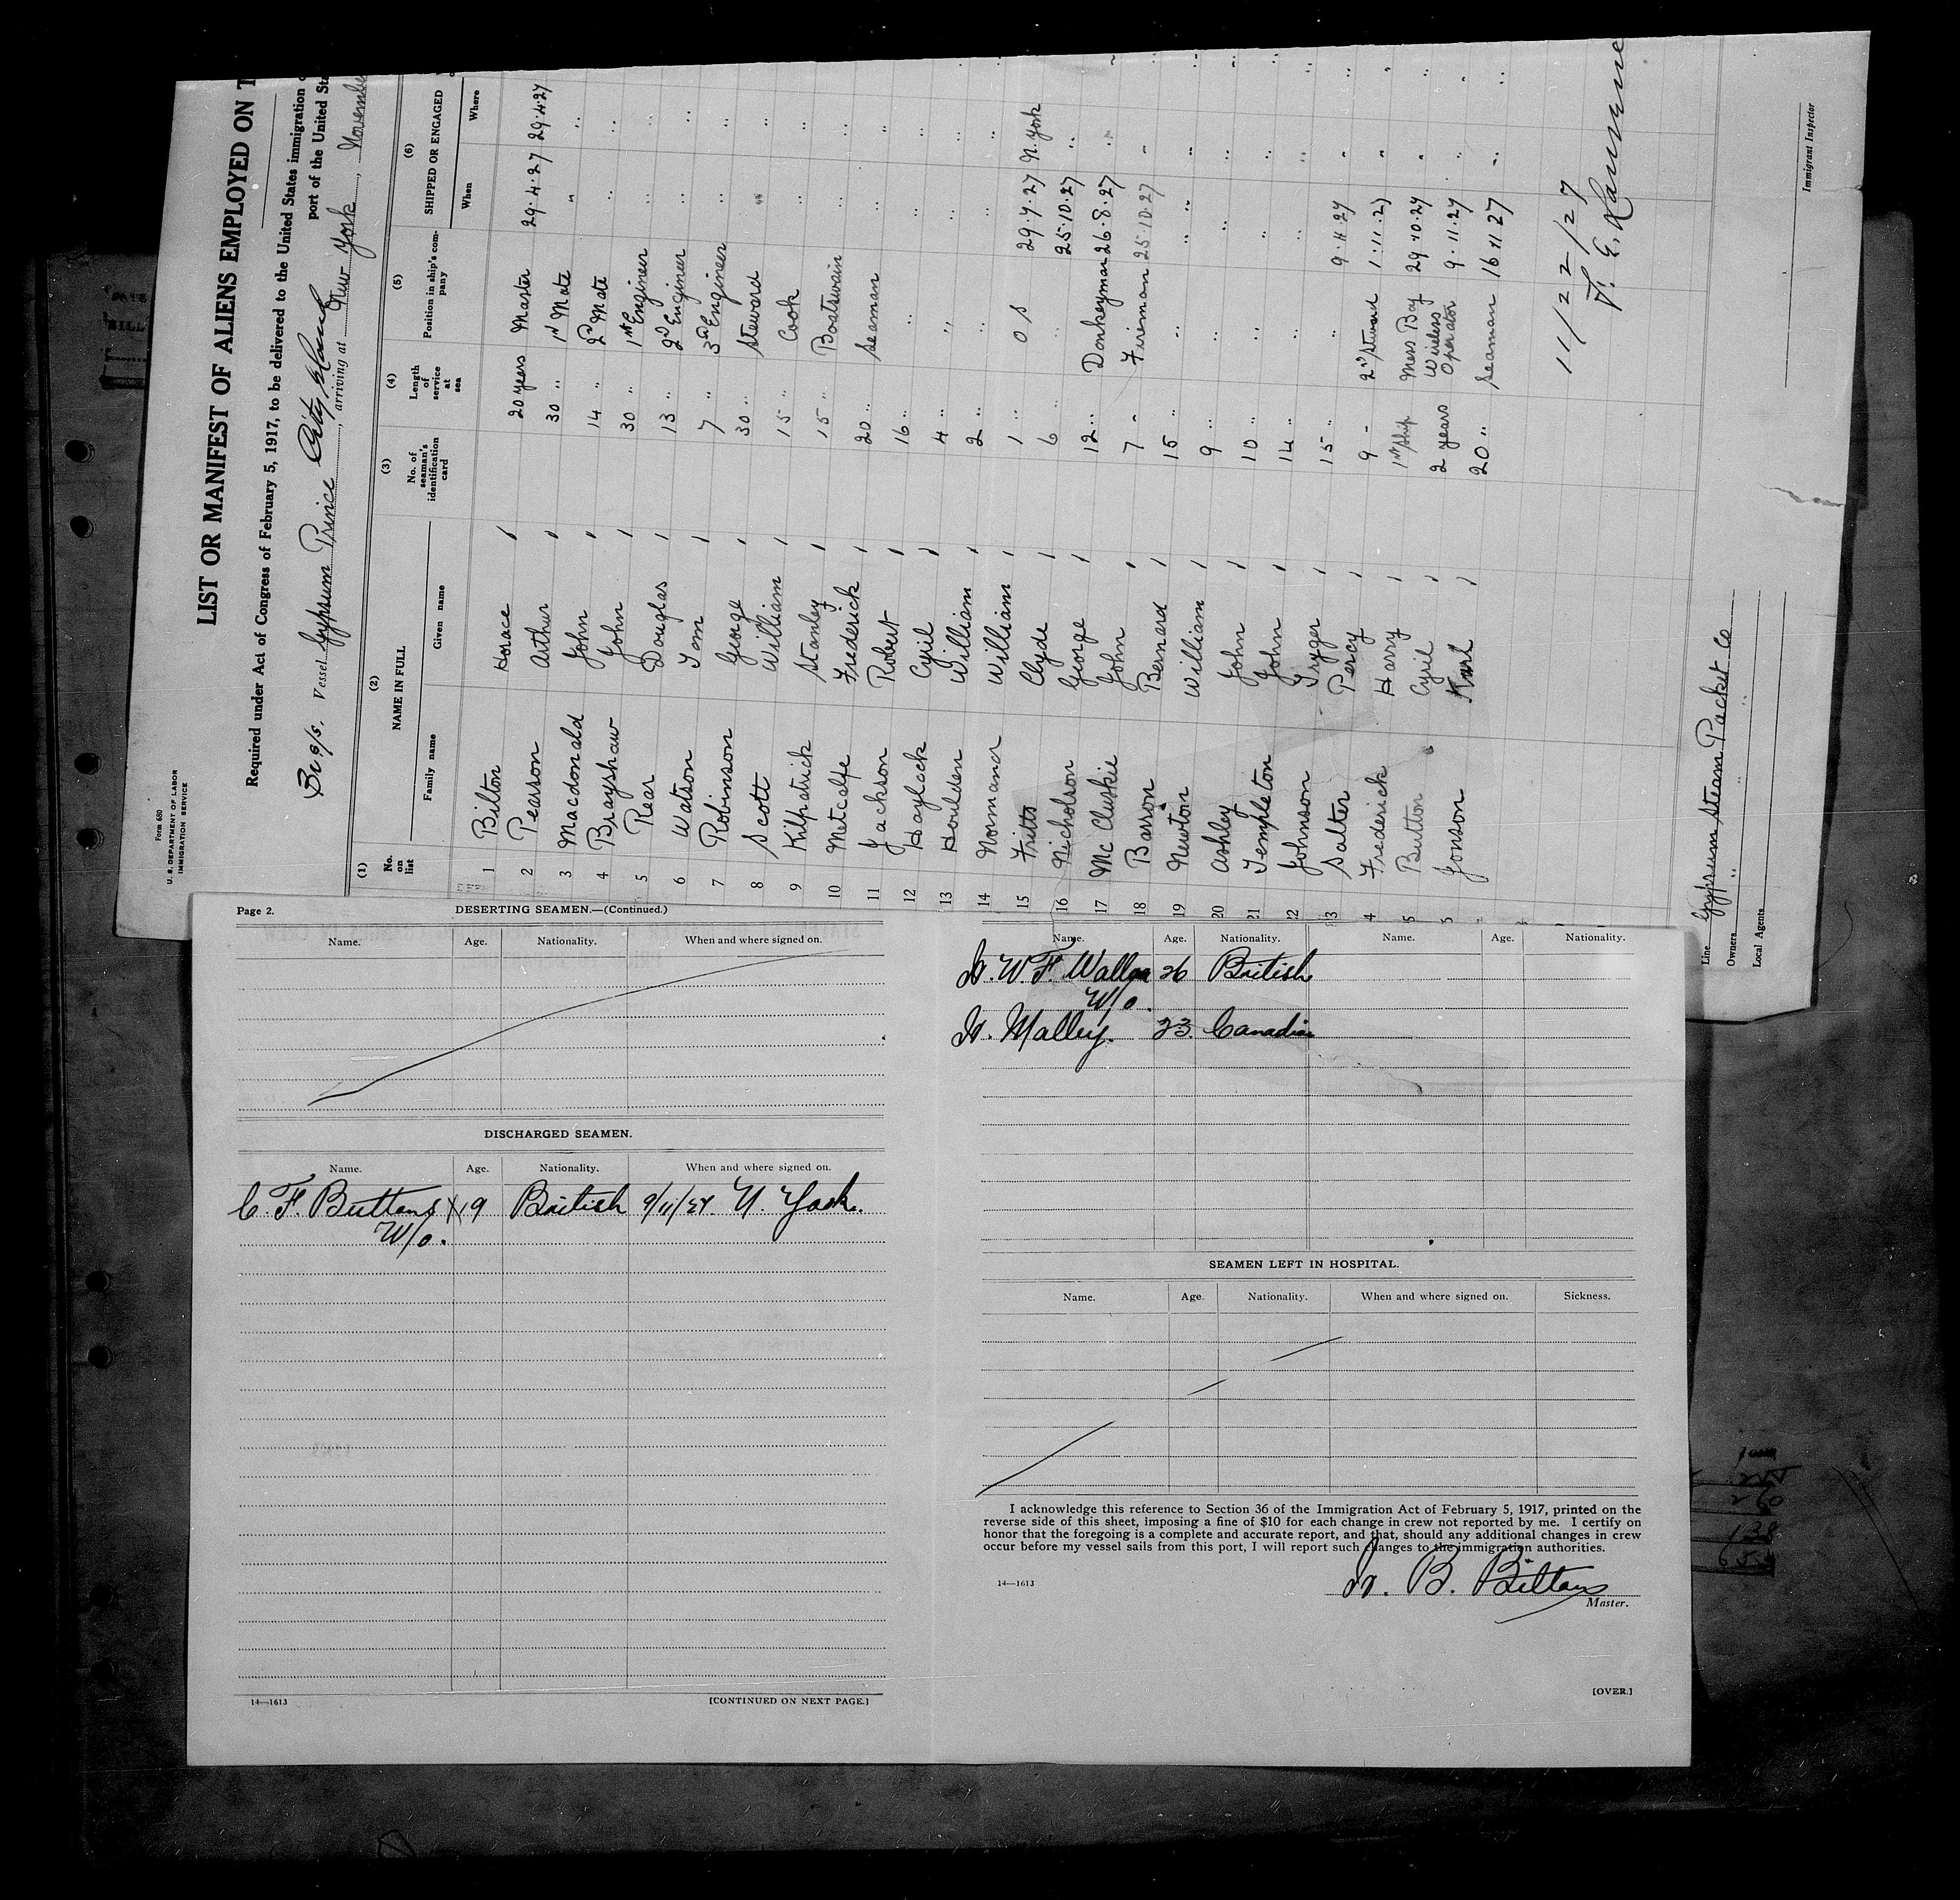 Form 680
U. S. DEPARTMENT OF LABOR
IMMIGRATION SERVICE
LIST OR MANIFEST OF ALIENS EMPLOYED ON T
Required under Act of Congress of February 5, 1917, to be delivered to the United States immigration
port of the United Sta
Vessel Gypsum Prince, arriving at New York, Novembe
(1) (2) (3) (4) (5) (6)
No. on list NAME IN FULL No. of seaman's identification card Length of service at sea Position in ship's company SHIPPED OR ENGAGED
Family name Given name When Where
1 Bilton Horace 20 years Master 29.4.27 29.4.27
2 Pearson Arthur 30 " 1st Mate " "
3 Macdonald John 14 " 2nd Mate " "
4 Brayshaw John 30 " 1st Engineer " "
5 Rear Douglas 13 " 2nd Engineer " "
6 Watson Tom 7 " 3rd Engineer " "
7 Robinson George 30 " Steward " "
8 Scott William 15 " Cook " "
9 Kilpatrick Stanley 15 " Boatswain " "
10 Metcalfe Frederick 20 " Seaman " "
11 Jackson Robert 16 " " " "
12 Haylock Cyril 4 " " " "
13 Houlden William 2 " " " "
14 Normand William 1 " O S 29.7.27 N. York
15 Fritts Clyde 6 " " 25.10.27 "
16 Nicholson George 12 " Donkeyman 26.8.27 "
17 Mc Cluskie John 7 " Fireman 25.10.27 "
18 Barson Bernard 15 " " " "
19 Newton William 9 " " " "
20 Ashley John 10 " " " "
21 Templeton John 14 " " " "
22 Johnson 15 " " 9.11.27 "
23 Salter Percy 9 " 2nd Steward 1.11.27 "
4 Frederick Harry 1st Ship Mess Boy 29.10.27 "
5 Button Cyril 2 years Wireless Operator 9.11.27 "
Jonson Karl 20 " Seaman 16 11 27 "
11/22/27
Line Gypsum Steam Packet Co
Owners " "
Local Agents
Immigrant Inspector
Page 2.
DESERTING SEAMEN.—(Continued.)
Name. Age. Nationality. When and where signed on.
DISCHARGED SEAMEN.
Name. Age. Nationality. When and where signed on.
C. F. Buttons 19 British 9/11/27. N. York.
W/o.
14—1613
[CONTINUED ON NEXT PAGE.]
Name. Age. Nationality. Name. Age. Nationality.
W. F. 26 British
W/o.
H. Malley. 23. Canadian
SEAMEN LEFT IN HOSPITAL.
Name. Age. Nationality. When and where signed on. Sickness.
I acknowledge this reference to Section 36 of the Immigration Act of February 5, 1917, printed on the
reverse side of this sheet, imposing a fine of $10 for each change in crew not reported by me. I certify on
honor that the foregoing is a complete and accurate report, and that, should any additional changes in crew
occur before my vessel sails from this port, I will report such changes to the immigration authorities.
14—1613
H. B. Biltons
Master.
[OVER.]